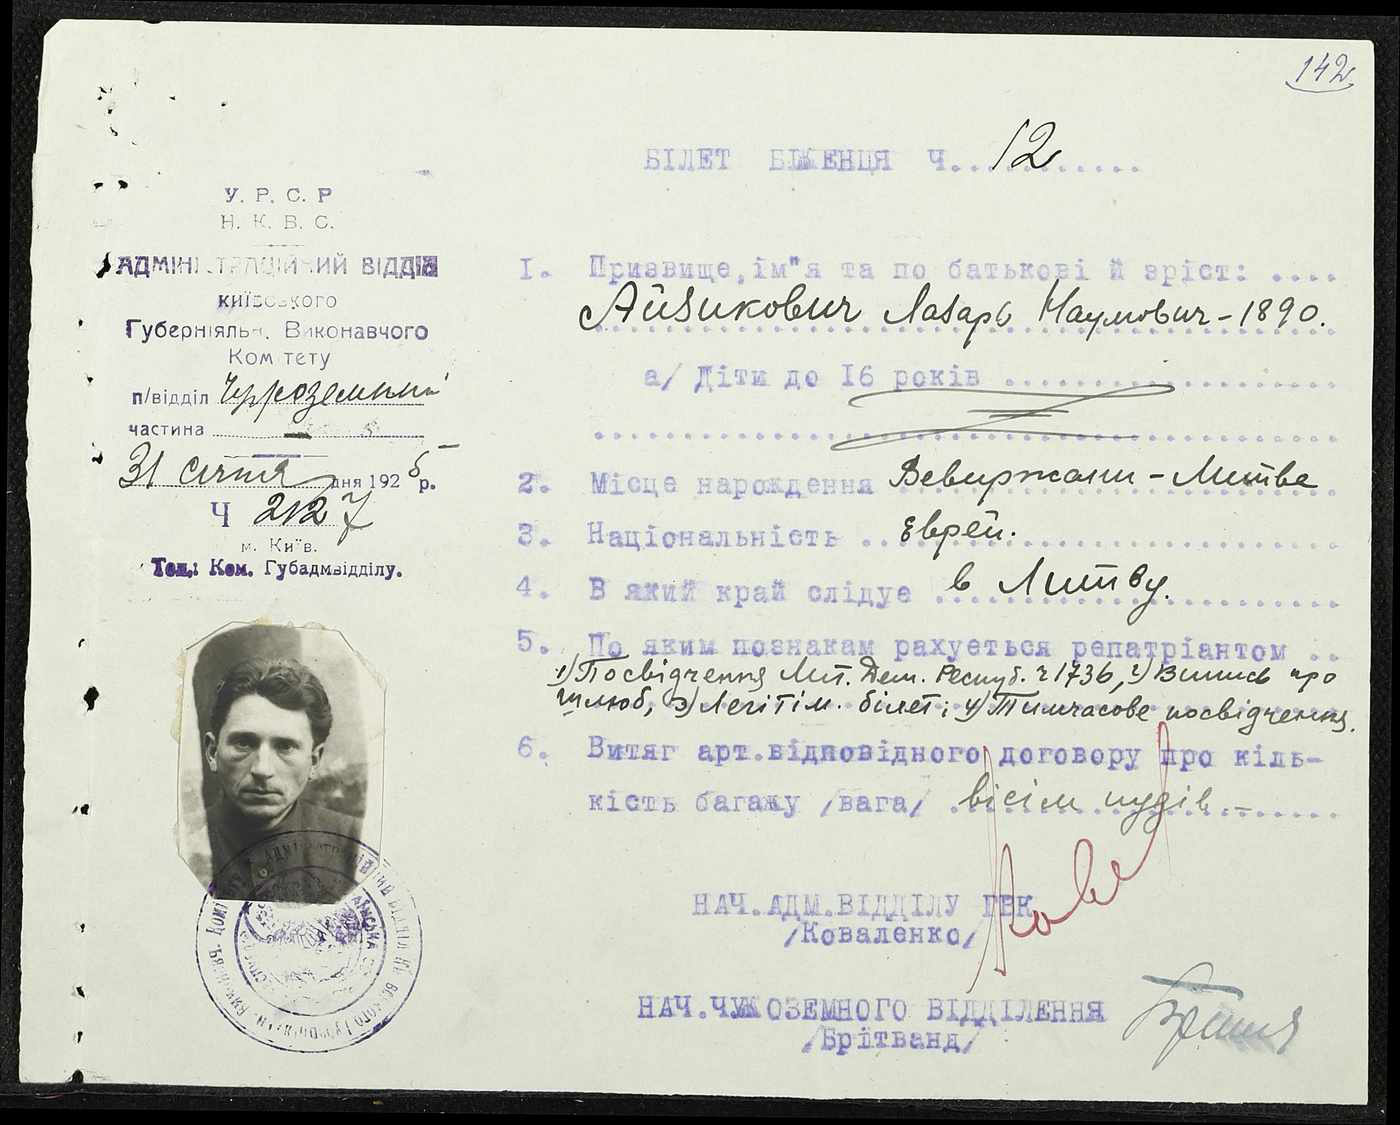 142
БІЛЕТ БІЖЕНЦЯ Ч. 12
У. Р. С. Р
Н. К. В. С.
АДМІНІСТРАЦІЙНИЙ ВІДДІЛ
КИЇВСЬКОГО
Губерніяльн. Виконавчого
Ком тету
п/відділ
частина
31 січня дня 1925 р.
Ч 2127
м. Київ.
Тел.: Ком. Губадмвідділу.
1. Призвище, ім"я та по батькові й зріст: ....
Айзикович Лазарь Наумович - 1890.
а/ Діти до 16 років
2. Місце нарождення Вевиржани - Литва
3. Національність Еврей.
4. В який край слідує в Литву.
5. По яким познакам рахуеться репатріантом ..
1) Посвідчення Лит. Дем. Респуб. ч 1736, 2) Випись про
шлюб, 3) Легітім. білет; 4) Тимчасове посвідчення.
6. Витяг арт.відповідного договору про кіль-
кість багажу /вага/ вісім пудів -
НАЧ.АДМ.ВІДДІЛУ ГВК
/Коваленко/
НАЧ.ЧУЖОЗЕМНОГО ВІДДІЛЕННЯ
/Брітванд/